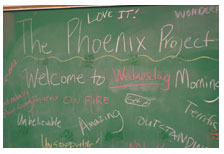 LOVE IT!
WONDER
The Phoenix Project
Welcome to Wednesday Morning
ON FIRE
Terrific
Unbelievable
Amazing
OUTSTANDING
Unstoppable!